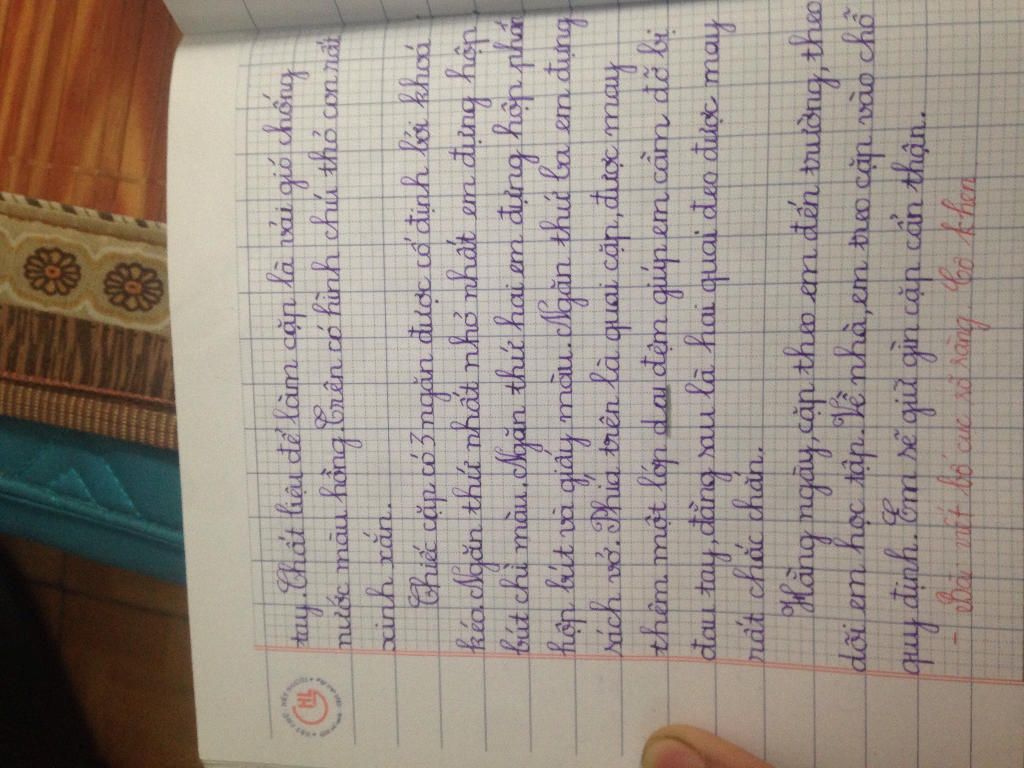 tay. Chất liệu để làm cặp là vải gió chống
nước màu hồng. Trên có hình chú thỏ con rất
xinh xắn.
Chiếc cặp có 3 ngăn được cố định bởi khoá
kéo. Ngăn thứ nhất nhỏ nhất em đựng hộp
bút chì màu. Ngăn thứ hai em đựng hộp phấn
hộp bút và giấy màu. Ngăn thứ ba em đựng
sách vở. Phía trên là quai cặp, được may
thêm một lớp dau đệm giúp em cầm đỡ bị
đau tay, đằng sau là hai quai đeo được may
rất chắc chắn.
Hằng ngày, cặp theo em đến trường, theo
dõi em học tập. Về nhà, em treo cặp vào chỗ
quy định. Em sẽ giữ gìn cặp cẩn thận.
- Bài viết bố cục rõ ràng. Cô khen